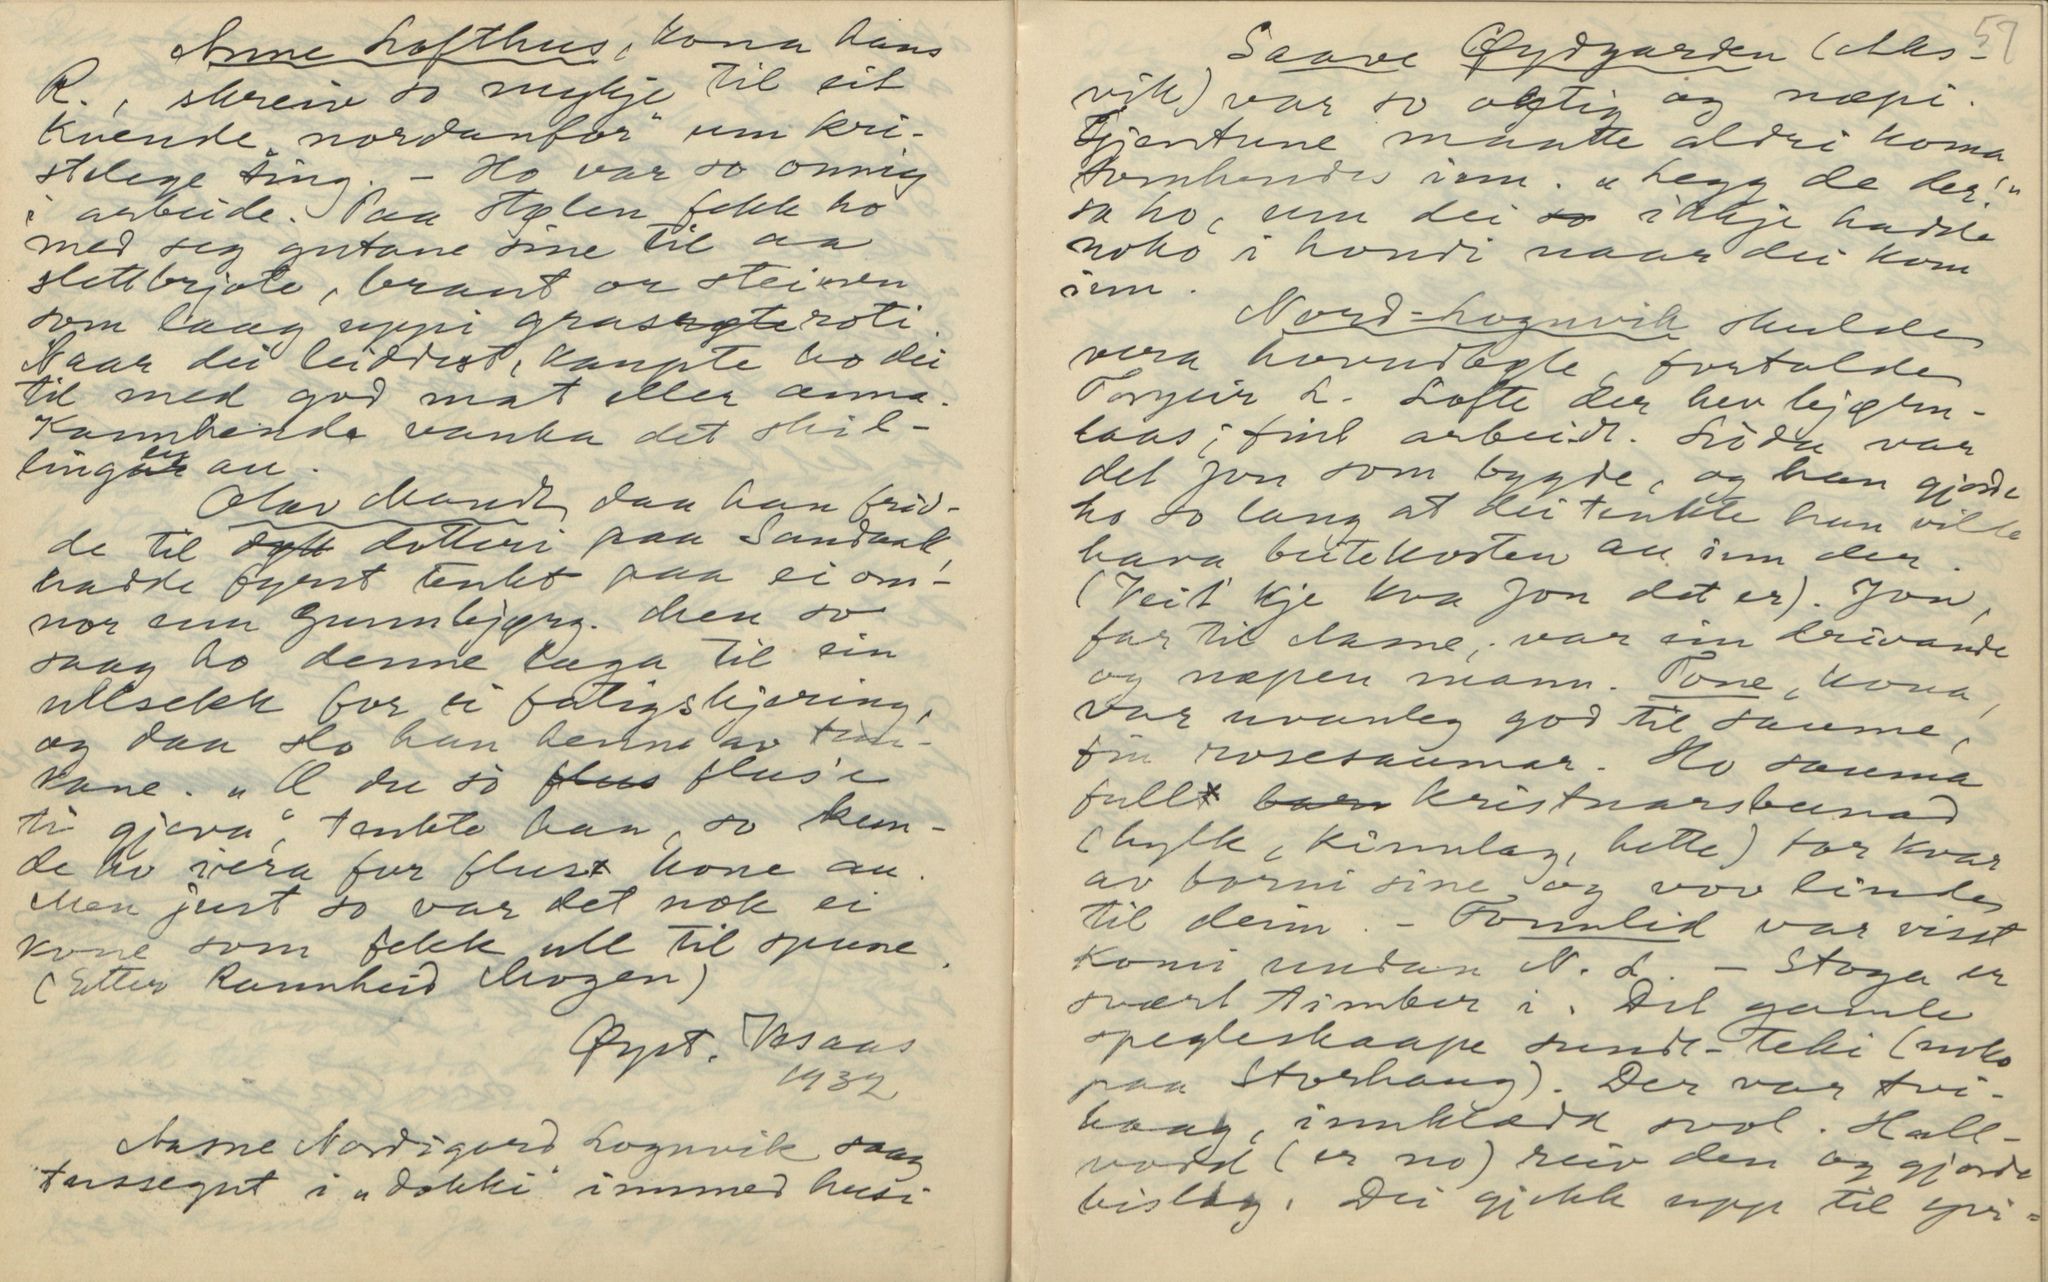 Anne Lofthus, kona hans
R., skreiv so mykje til eit
kvende "nordanfor" um kri-
stelege ting. - Ho var so onnig
i arbeide. Paa stølen fekk ho
med seg gutane sine til aa
slettbrjote, braut or steinen
som laag uppi grasrøte roti.
Naar dei leiddest, kaupte ho dei
til med god mat eller anna.
Kannhenda vanka det skil-
lingar au.
Olav Mandt, daa han frid-
de til dott dotteri paa Sandaak,
hadde fyrst tenkt paa ei om-
nor enn Gunnbjørg. Men so
saag ho denne laga til ein
ullsekk for ei fatigskjering,
og daa slo han henne av tan-
kane. "Æ du so flus flus'e
ti gjeva", tenkte han, so kun-
de ho vera for flus kone au.
Men just so var det nok ei
kone som fekk ull til spune.
(Etter Rannheid Mogen)
Øyst. Vesaas
1932
Aasne Nordigard Lognvik saag
tussegut i "dokki" innmed husi
57
Saave Øydgarden (Aas-
vik) var so agtig og næpi.
Gjentune maatte aldri koma
tomhendes inn. "Legg de der!"
sa ho, um dei so ikkje hadde
noko i hondi naar dei kom
inn.
Nord-Lognvik skulde
vera hovudbøle, fortalde
Torgeir L. Lofte der hev bjørn-
laas; fint arbeid. Sidu var
det Jon som bygde, og han gjorde
ho so lang at dei tenkte han vilde
hava beitekosten au inn der.
(Veit kje kva Jon det er). Jon,
far til Aasne, var ein drivande
og næpen mann. Tone, kona,
var uvanleg god til saume,
fin rosesaumar. Ho sauma
full barn kristnarsbunad
(hylk, kinnlag, hette) for kvar
av borni sine og vov linde
til deim. - Tomlid var visst
komi undan N. L. - Stoga er
svært timber i. Det gamle
spegleskaape sundt-teki (noko
paa Storhaug). Der var tvi-
haag, innklædd sval. Hall-
vord (er no) reiv den og gjorde
bislag. Dei gjekk upp til yvi-